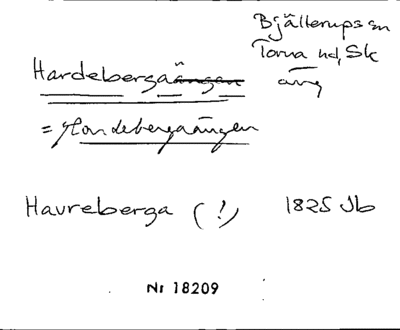 Bjällerups sn
Torna hd, Sk
Hardebergaängen
äng
= Hardebergaängen
Havreberga (!) 1825 Jb
Nr 18209